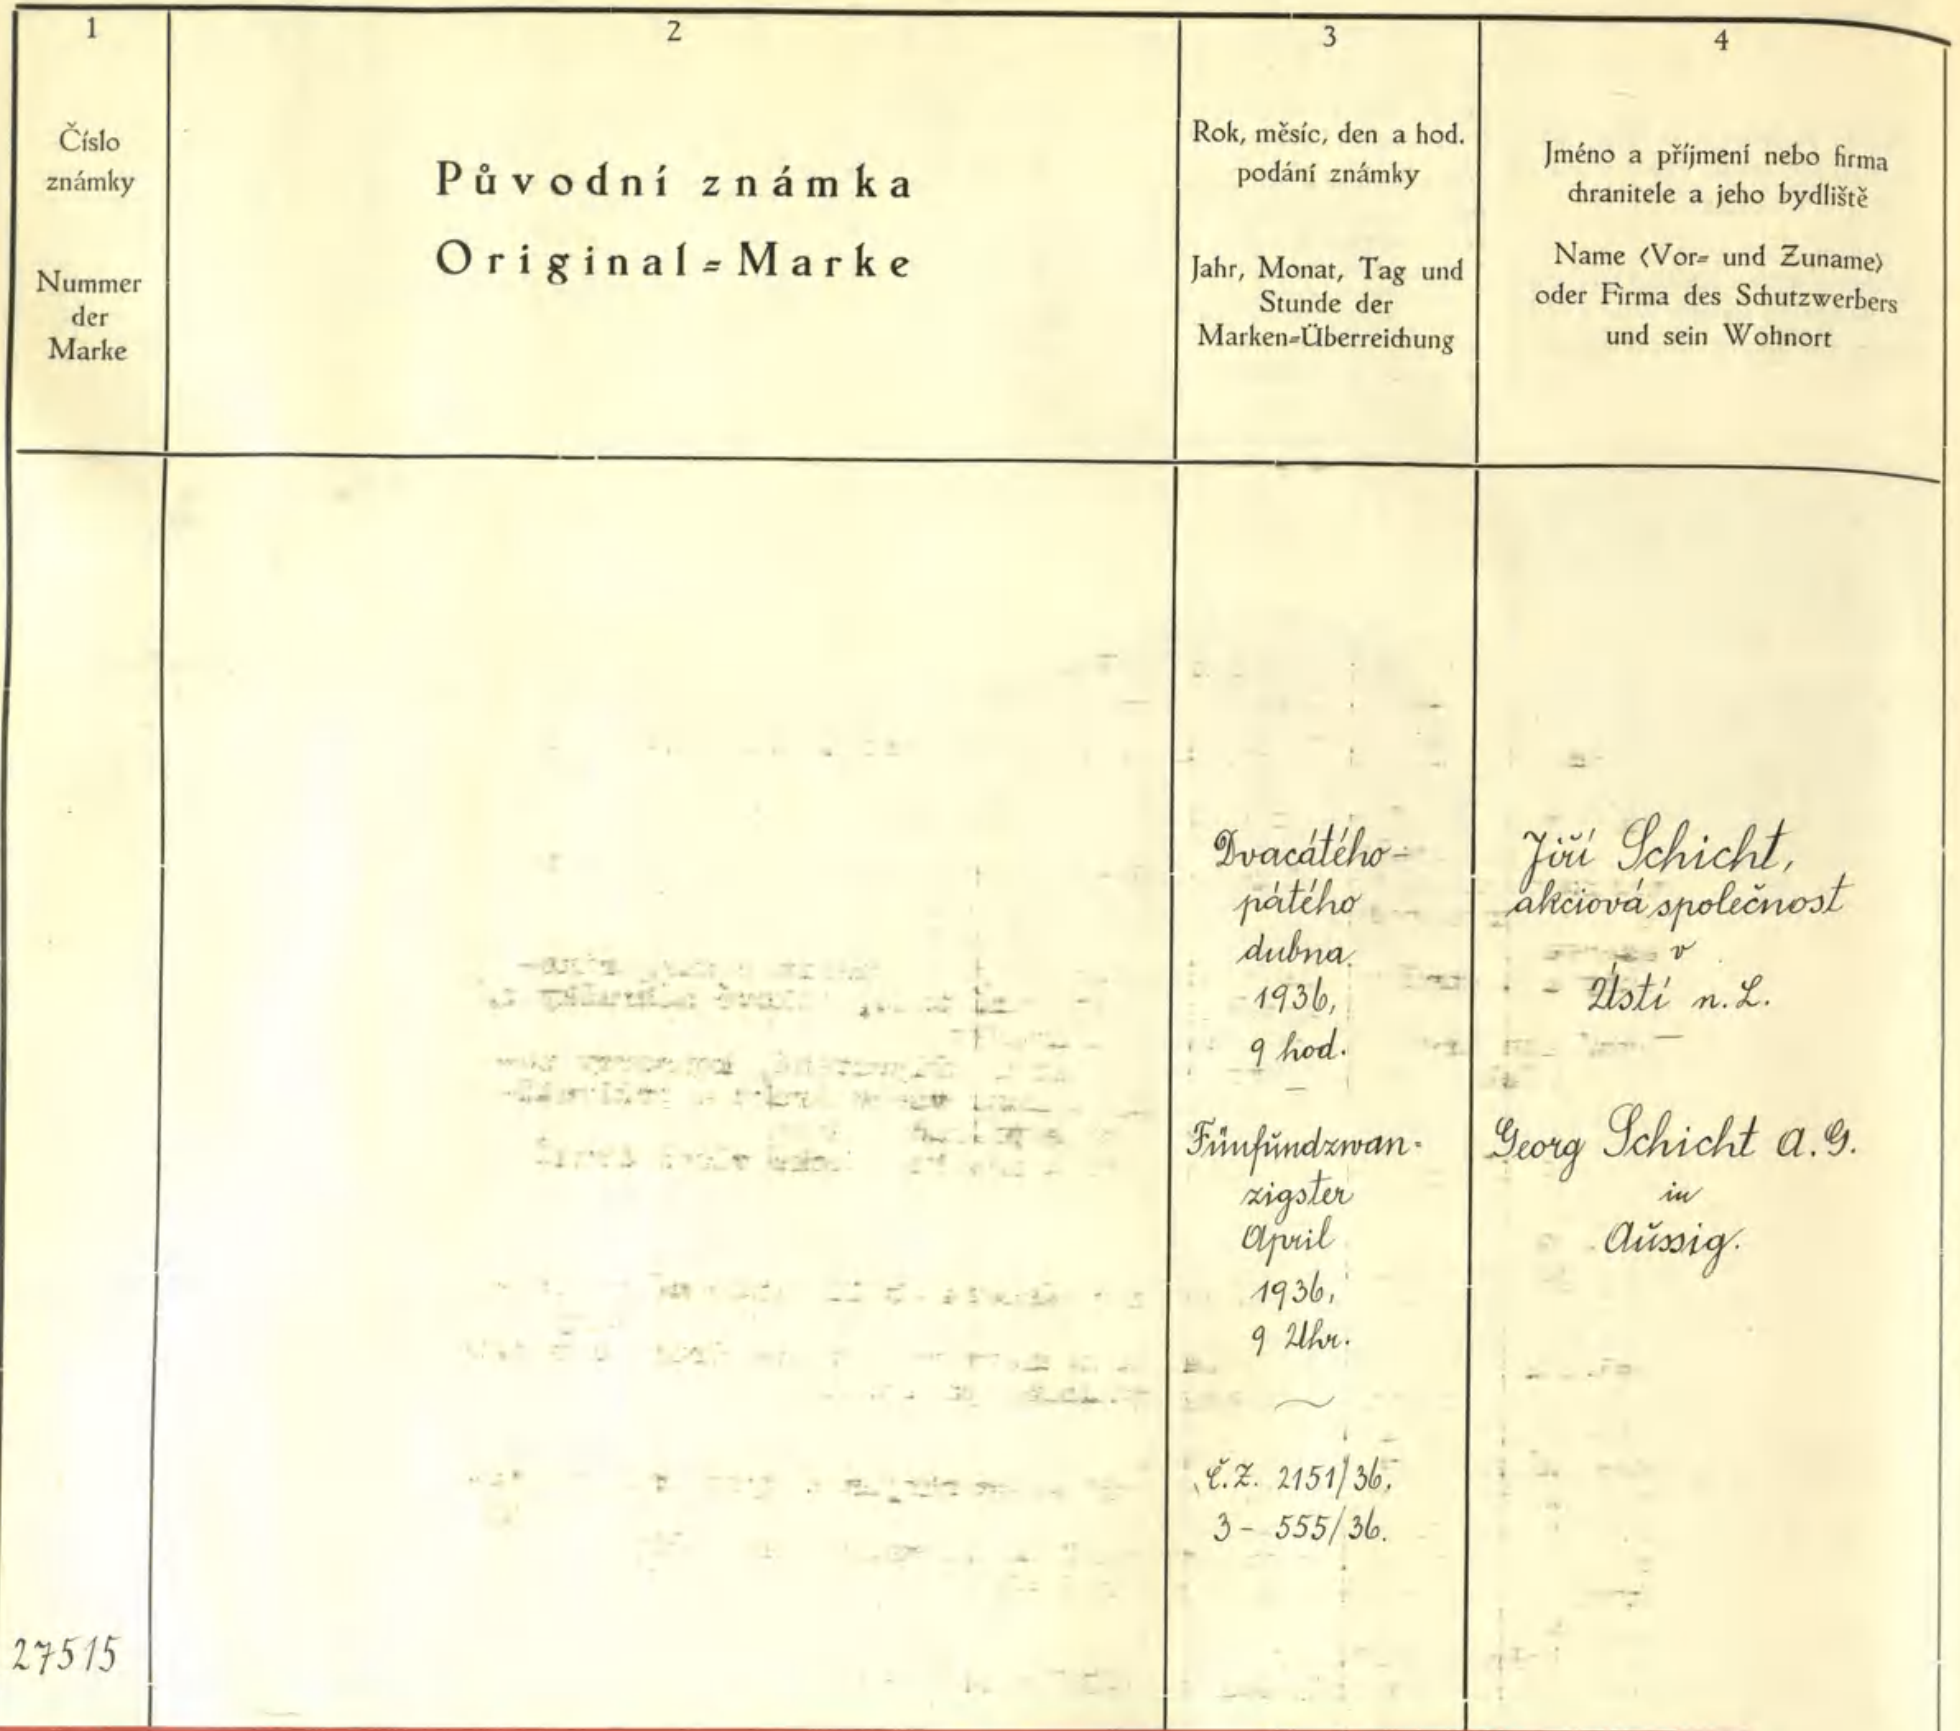 1
Číslo
známky
Nummer
der
Marke
2
Původní známka
Original=Marke
3
Rok, měsíc, den a hod.
podání známky
Jahr, Monat, Tag und
Stunde der
Marken=Überreichung
4
Jméno a příjmení nebo firma
chranitele a jeho bydliště
Name (Vor= und Zuname)
oder Firma des Schutzwerbers
und sein Wohnort
27515
Dvacátého-
pátého
dubna
1936,
9 hod.
—
Fünfŭndzwan-
zigster
April
1936,
9 Uhr.
Č.Z. 2151/36.
3 - 555/36.
Jiří Schicht,
akciová společnost
v
Ústí n. L.
—
Georg Schicht A.G.
in
Aŭssig.